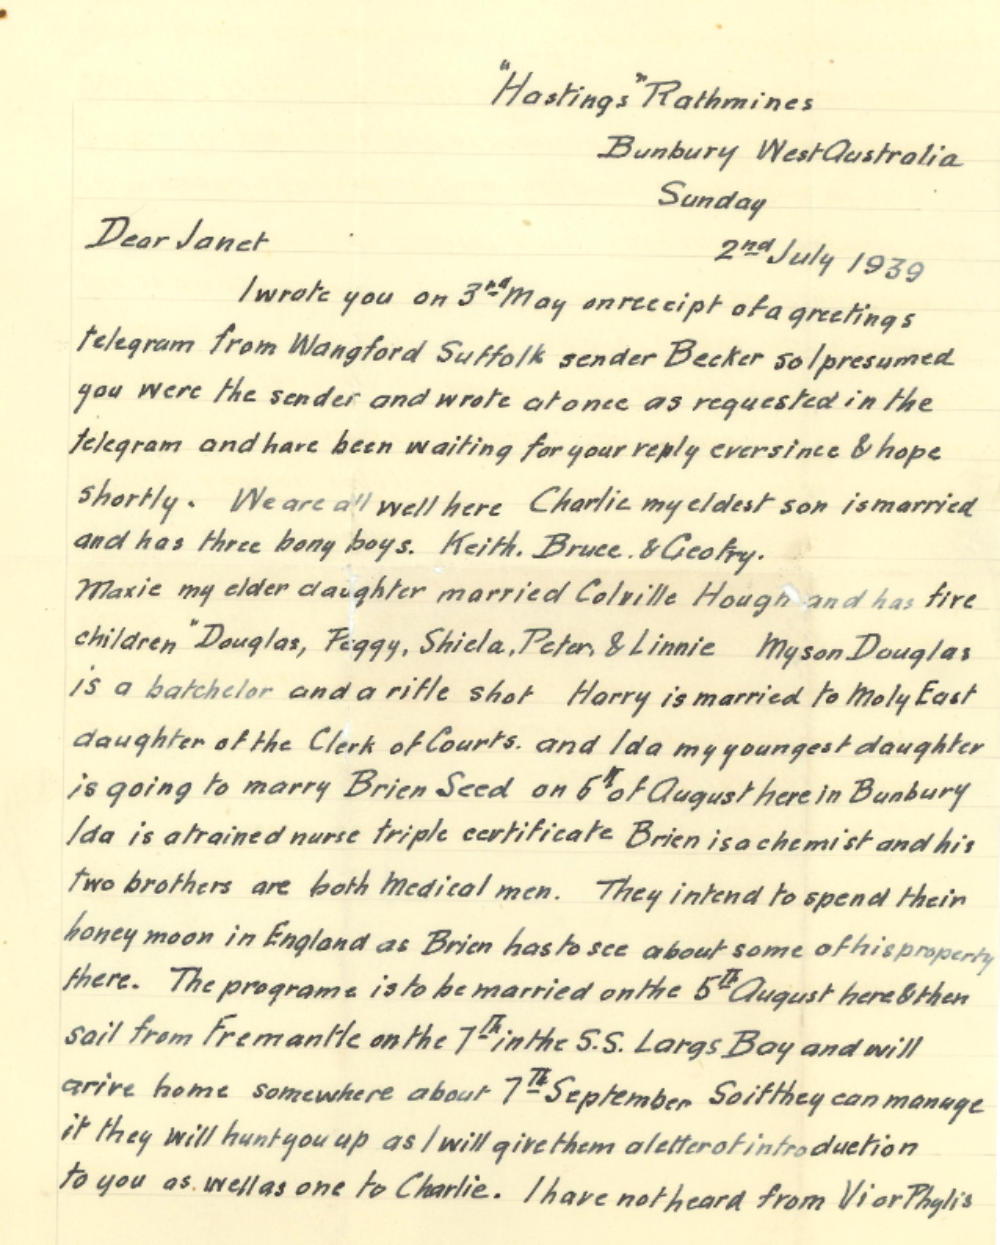 "Hastings" Rathmines
Bunbury West Australia
Sunday
Dear Janet
2nd July 1939
I wrote you on 3rd May on receipt of a greetings
telegram from Wangford Suffolk sender Becker so I presumed
you were the sender and wrote at once as requested in the
telegram and have been waiting for your reply ever since & hope
shortly. We are all well here Charlie my eldest son is married
and has three bony boys. Keith. Bruce. & Geofry.
Maxie my elder daughter married Colville Hough and has five
children "Douglas, Peggy, Shiela, Peter, & Linnie My son Douglas
is a batchelor and a rifle shot Harry is married to Moly East
daughter of the Clerk of Courts. and Ida my youngest daughter
is going to marry Brien Seed on 5th of August here in Bunbury
Ida is a trained nurse triple certificate Brien is a chemist and his
two brothers are both Medical men. They intend to spend their
honey moon in England as Brien has to see about some of his property
there. The programe is to be married on the 5th August here & then
sail from Fremantle on the 7th in the S.S. Largs Bay and will
arive home somewhere about 7th September So if they can manage
it they will hunt you up as I will give them a letter of introduction
to you as well as one to Charlie. I have not heard from Vi or Phylis